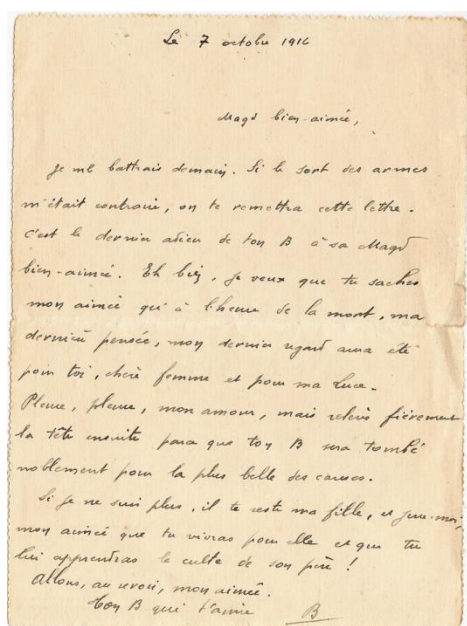 Le 7 octobre 1916
Magd bien-aimée,
Je me battrais demain. Si le sort des armes
m'était contraire, on te remettra cette lettre.
C'est le dernier adieu de ton B à sa Magd
bien-aimée. Eh bien, je veux que tu saches
mon aimée qu'à l'heure de la mort, ma
dernière pensée, mon dernier regard aura été
pour toi, chère femme et pour ma Luce.
Pleure, pleure, mon amour, mais relève fièrement
la tête ensuite parce que ton B sera tombé
noblement pour la plus belle des causes.
Si je ne suis plus, il te reste ma fille, et jure-moi,
mon aimée que tu vivras pour elle et que tu
lui apprendras le culte de son père !
Allons, au revoir, mon aimée.
Ton B qui t'aime
B